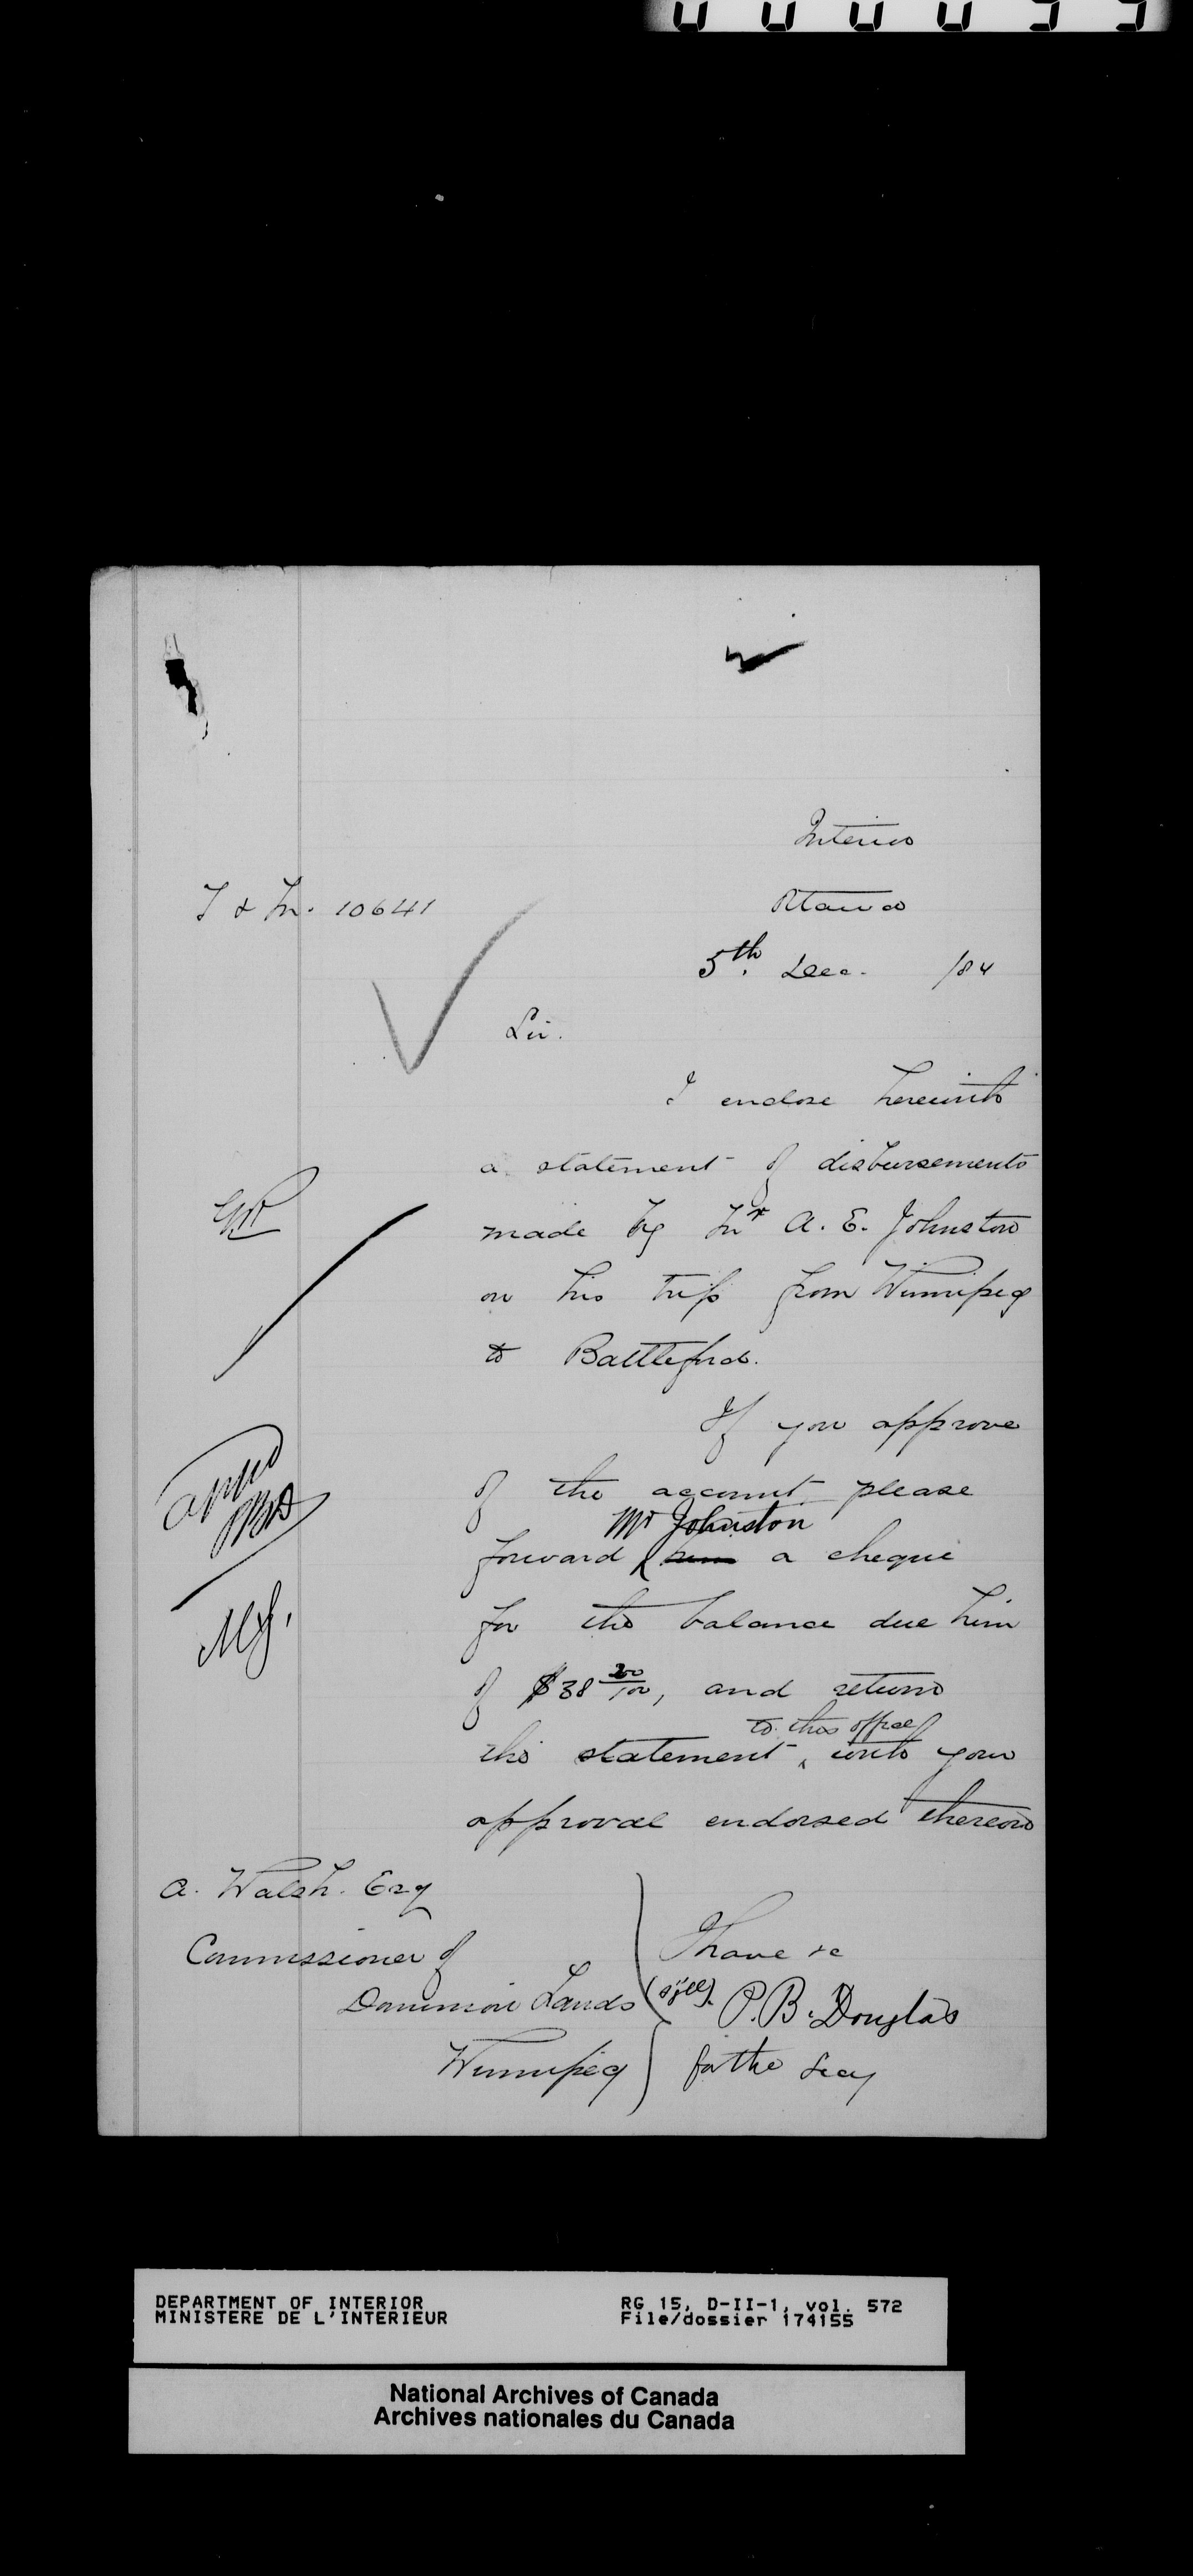 Interior
T & M. 10641
Ottawa
5th. Dec. /84
Sir.
I enclose herewith
a statement of disbursements
made by Mr A. E. Johnston
on his trip from Winnipeg
to Battleford.
If you approve
of the account please
Mr Johnston
forward him a cheque
for the balance due him
of $38 20/100, and return
to this office
the statement, with your
approval endorsed thereon
A. Walsh. Esq
Commissioner of
Dominion Lands
Winnipeg
I have &c
P. B. Douglas
for the Secy
DEPARTMENT OF INTERIOR
MINISTERE DE L'INTERIEUR
RG 15, D-II-1, vol. 572
File/dossier 174155
National Archives of Canada
Archives nationales du Canada